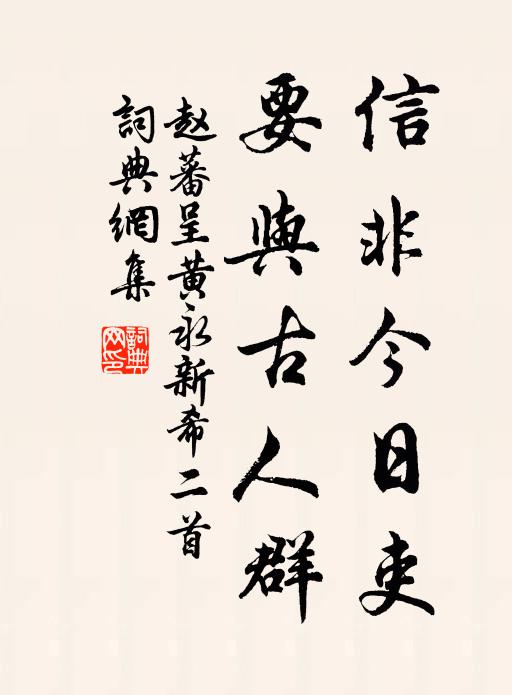 信非今日吏
要與古人群
赵蕃呈黄永新希二首
詞典網集
詞典網印